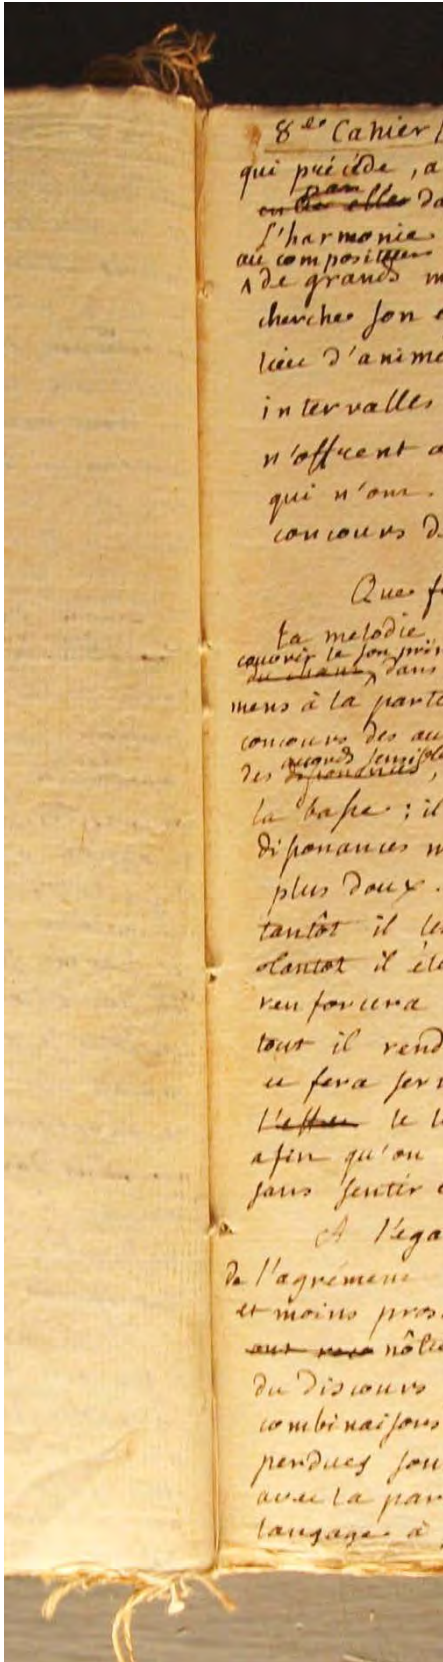 8.e Cahier
qui précéde, a
par
entre elles da
l'harmonie
au compositeur
de grands m
cherche son e
lieu d'anime
intervalles
n'offrent a
qui n'ont
concours d
Que f
la melodie
couvrir le son prin
du chant, dans
mens à la parti
concours des au
accords sensible
des dissonances,
la basse; il
dissonances m
plus doux.
tantôt il le
tantot il éle
renforcera
tout il rend
ce sera ser
l'effet le l
afin qu'on
sans sentir
A l'éga
de l'agrément
et moins pros
nôtre
du discours
combinaisons
perdues sou
avec la par
langage à